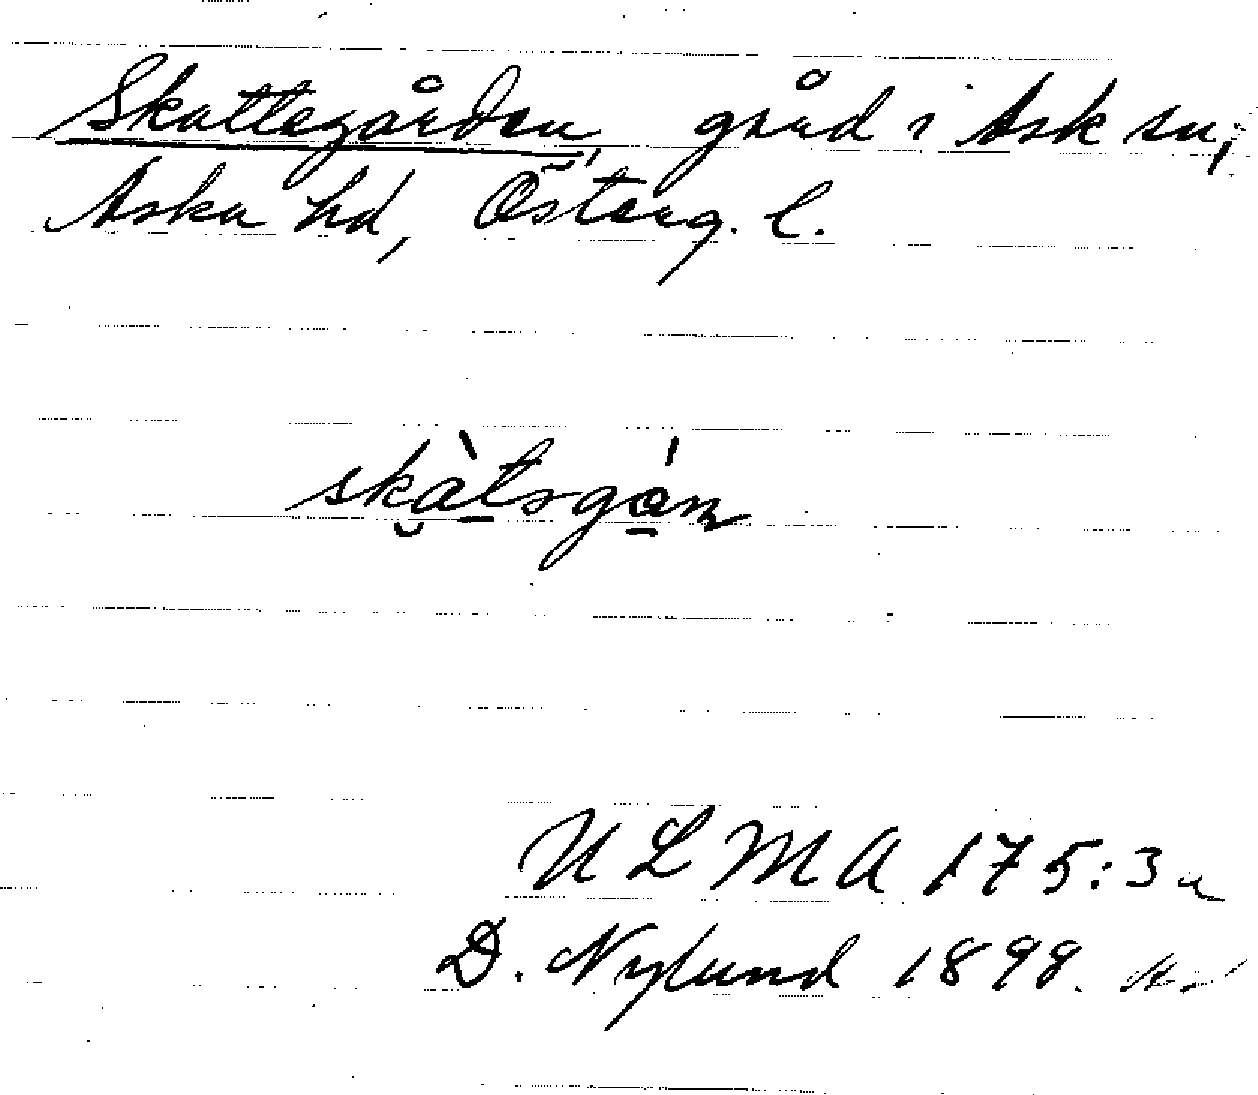 Skattegården gård i Ask sn,
Aska hd, Österg. l.
skàtsgón
ULMA 175:3a
D. Nylund 1898.